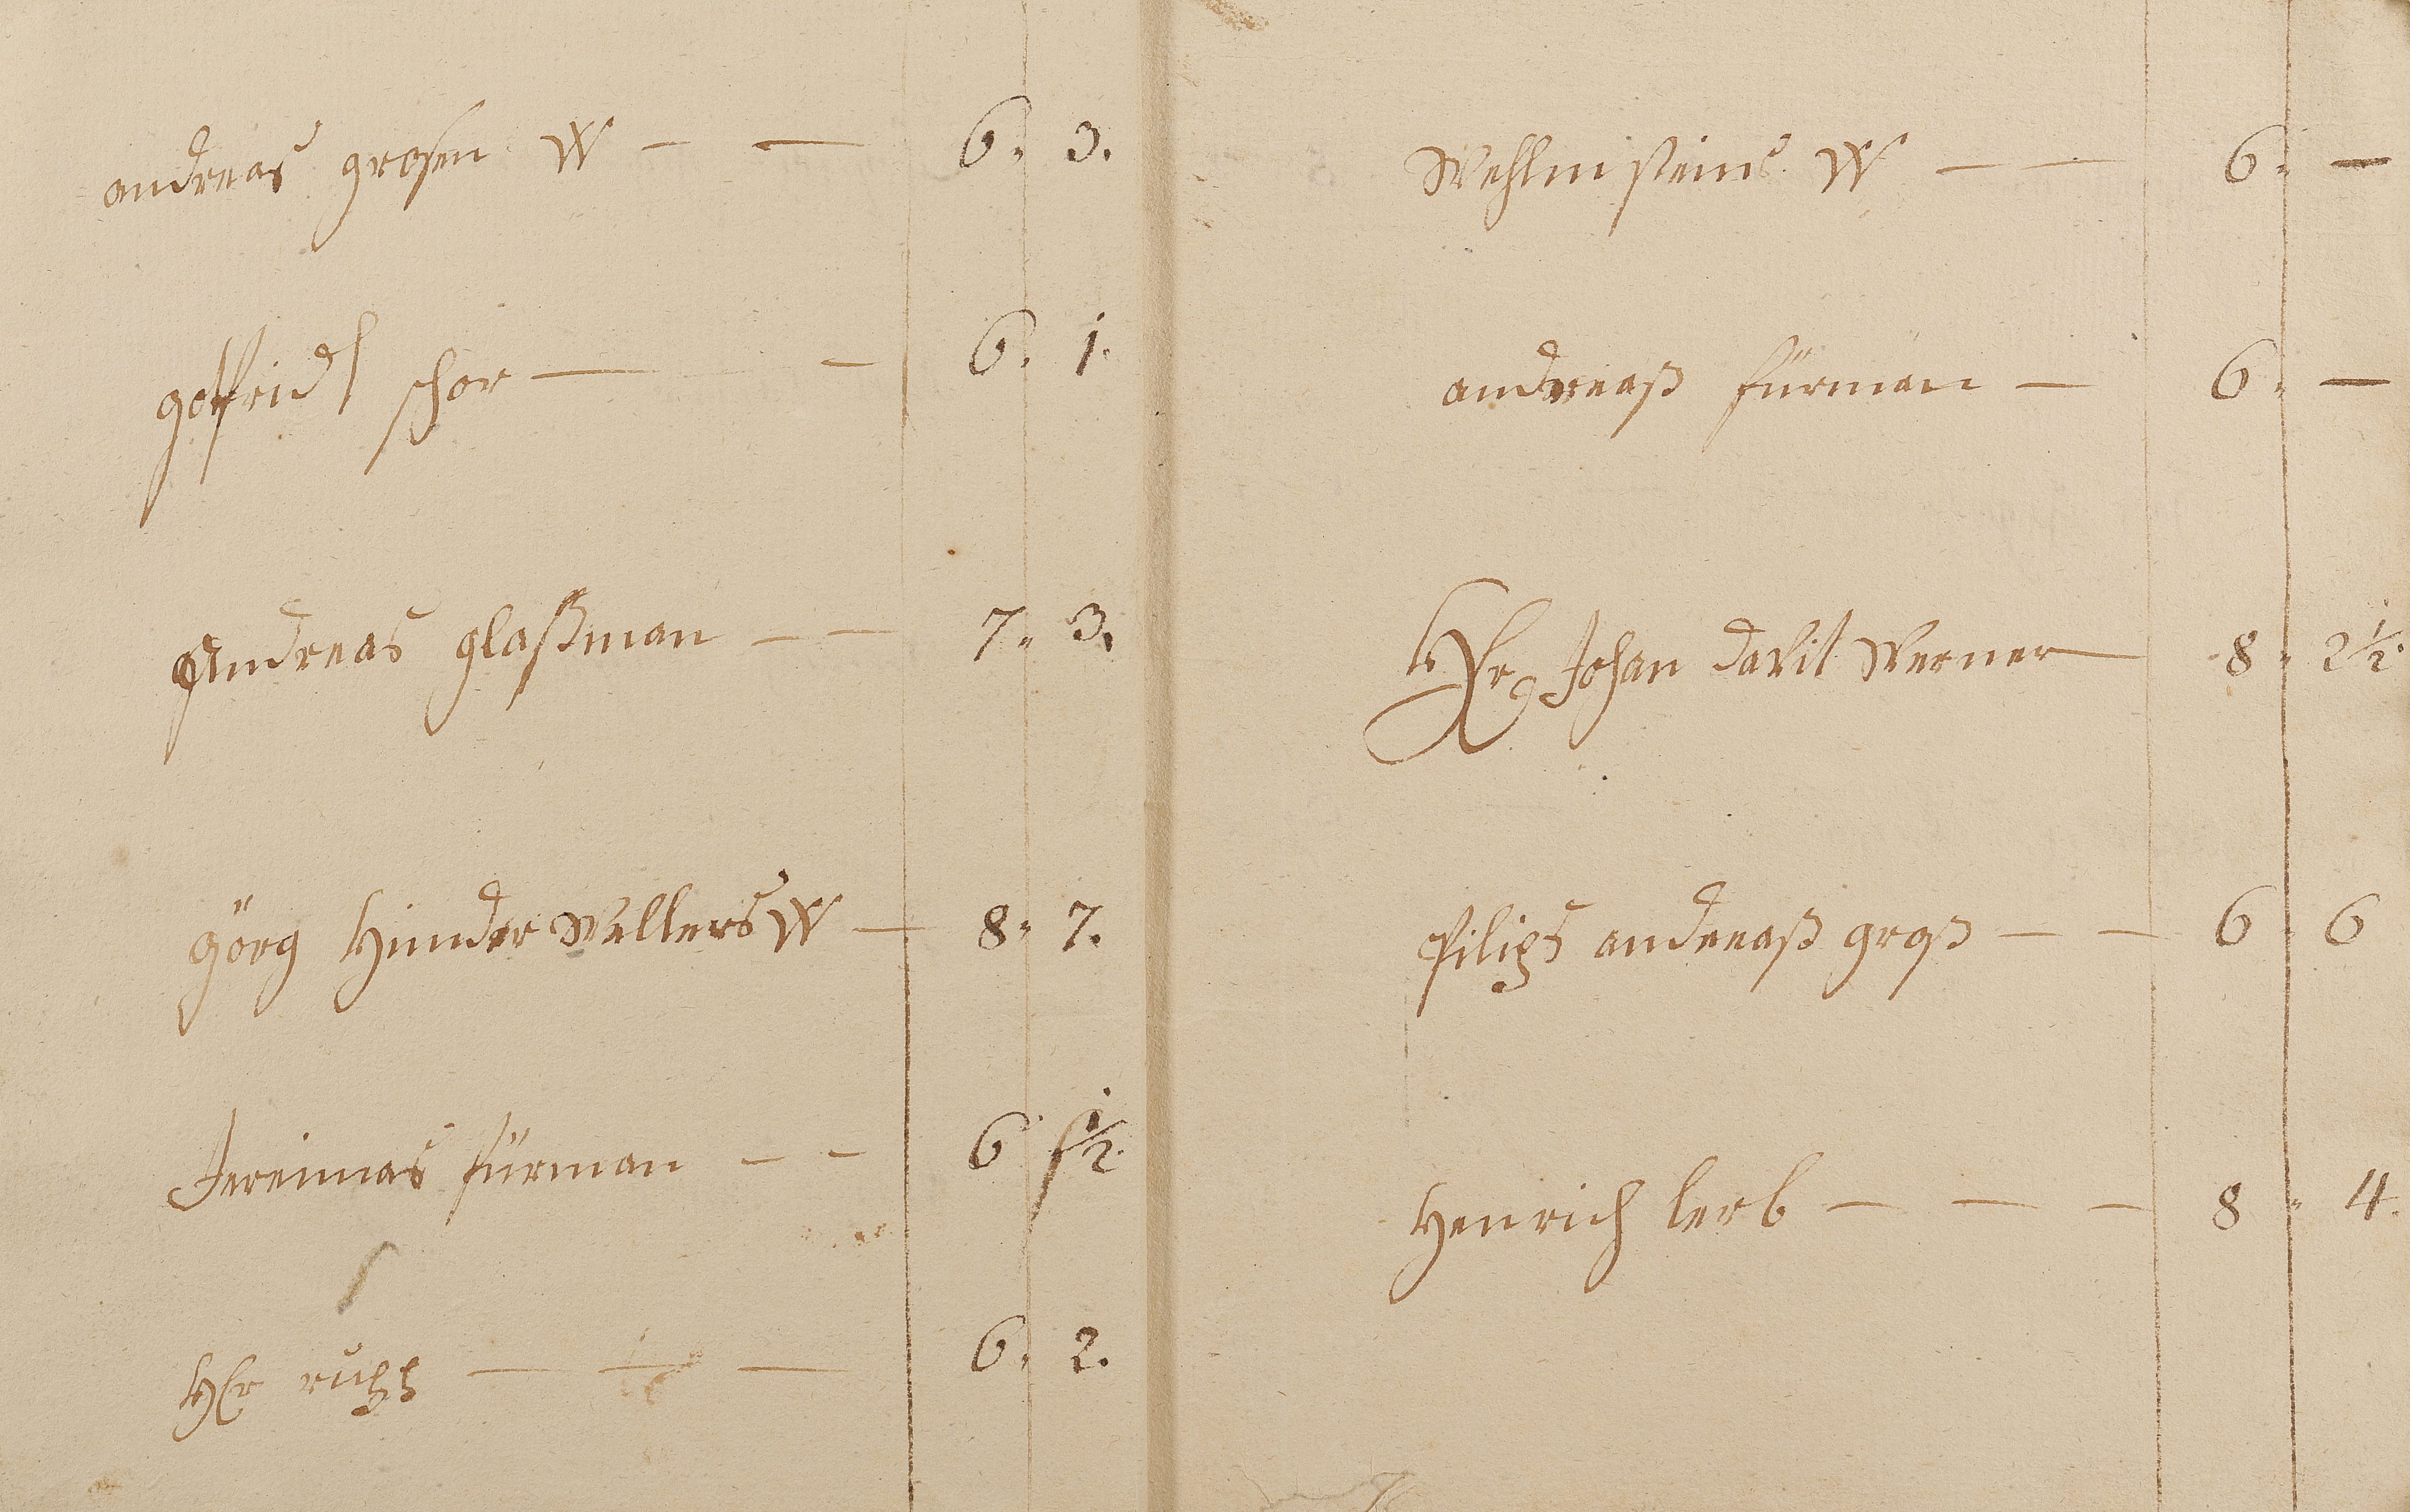 andreas grosen W — — 6. 3.
gotfridt schor — — 6. 1.
Andreas glaßman — — 7. 3.
görg Hinder Wellers W — 8. 7.
Jereimas fürman — — 6 1½.
Hr rupp — — — 6. 2.
Wehlm steins W — — 6. —
andreaß fürman — 6. —
Hr Johan david Werner 8. 2½.
filips andreaß groß — — 6. 6
Henrich lerb — — — 8. 4.